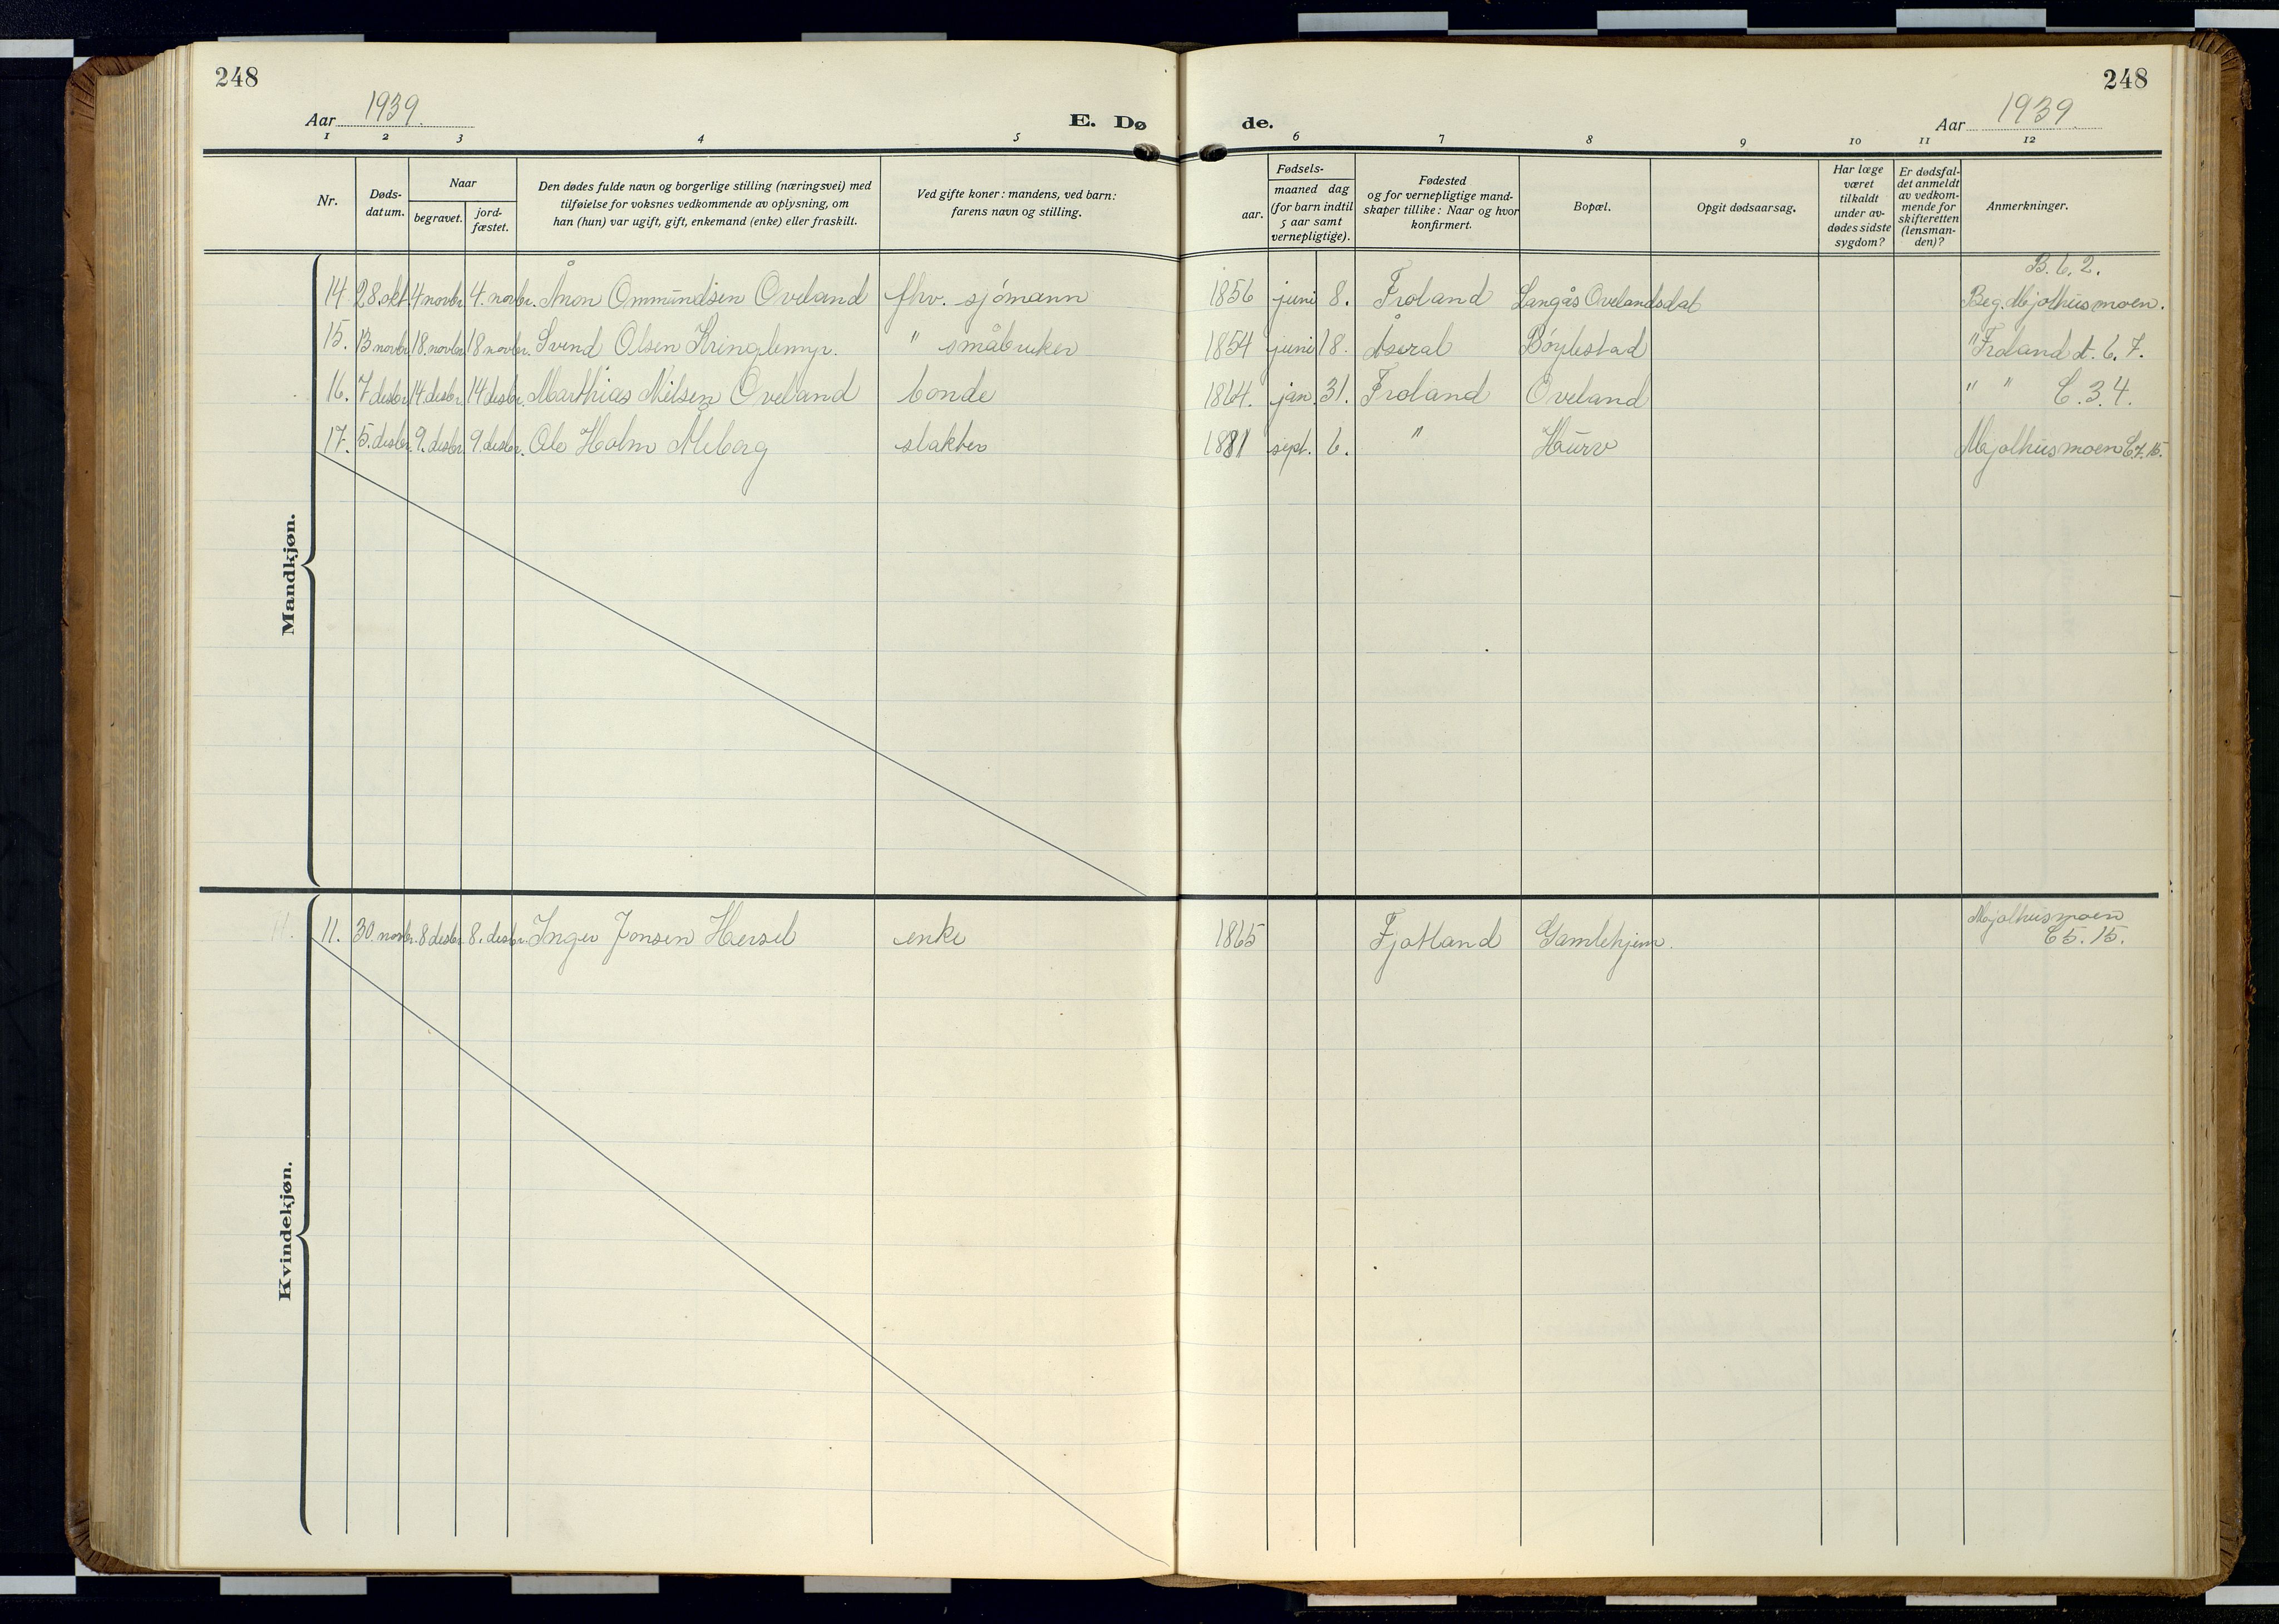 248
248
Aar 1939.
E. Dø
de.
Aar 1939.
1 2 3 4 5 6 7 8 9 10 11 12
Nr.
Døds-
datum.
Naar
begravet.
jord-
fæstet.
Den dødes fulde navn og borgerlige stilling (næringsvei) med
tilføielse for voksnes vedkommende av oplysning, om
han (hun) var ugift, gift, enkemand (enke) eller fraskilt.
Ved gifte koner: mandens, ved barn:
farens navn og stilling.
Fødsels-
aar.
maaned dag
(for barn indtil
5 aar samt
vernepligtige).
Fødested
og for vernepligtige mand-
skaper tillike: Naar og hvor
konfirmert.
Bopæl.
Opgit dødsaarsag.
Har læge
været
tilkaldt
under av-
dødes sidste
sygdom?
Er dødsfal-
det anmeldt
av vedkom-
mende for
skifteretten
(lensman-
den)?
Anmerkninger.
Mandkjøn.
B. 6. 2.
14 28. okt. 4 novbr. 4. novbr. Ånon Ommundsen Oveland fhv. sjómann 1856 juni 8. Froland Langås Ovelandsdal Beg. Mjolhusmoen.
15. 13 novbr. 18. novbr. 18 novbr. Svend Olsen Kringlemyr. " småbruker 1854 juni 18. Åseral Bóylestad " Froland d. 6. 7.
16. 7 desbr. 14. desbr. 14 desbr. Mathias Nilsen Oveland bonde 1864. jan. 31. Froland Oveland " " C. 3. 4.
17. 5. desbr. 9. desbr. 9. desbr. Ole Holm Åleborg slakter 1881 sept. 6. " Hurv Mjolhusmoen C 7. 15.
Kvindekjøn.
11. 30 novbr. 8 desbr. 8. desbr. Inger Jonsen Hersel enke 1865 Fjotland Gamlehjem. Mjolhusmoen
C 5. 15.